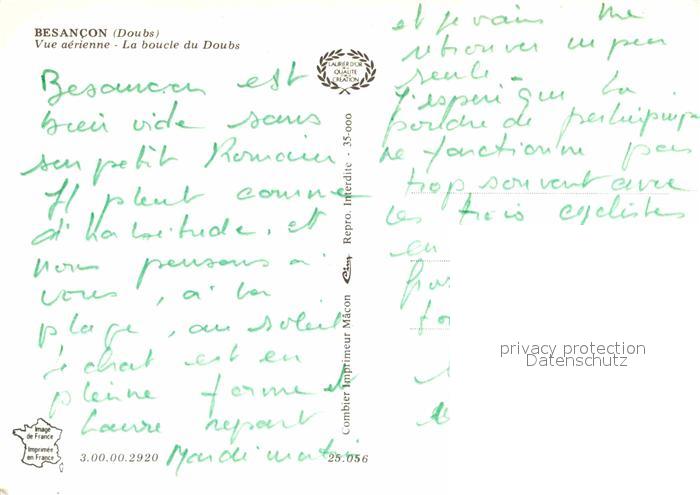 BESANÇON (Doubs)
Vue aérienne - La boucle du Doubs
Besancon est
bien vide sans
son petit Romain
Il pleut comme
d'habitude, et
nous pensons à
vous, à la
plage, au soleil
chat est en
pleine forme et
Laure repart
Mardi matin
LAURIER D'OR
DE LA
QUALITÉ
CRÉATION
Combier Imprimeur Mâcon Cim Repro. Interdite - 35-000
et je vais me
retrouver un peu
seule.
J'espère que la
poudre de
ne fonctionne pas
trop souvent avec
les trois cyclistes
en
privacy protection
Datenschutz
Image
de France
Imprimée
en France
3.00.00.2920
25.056